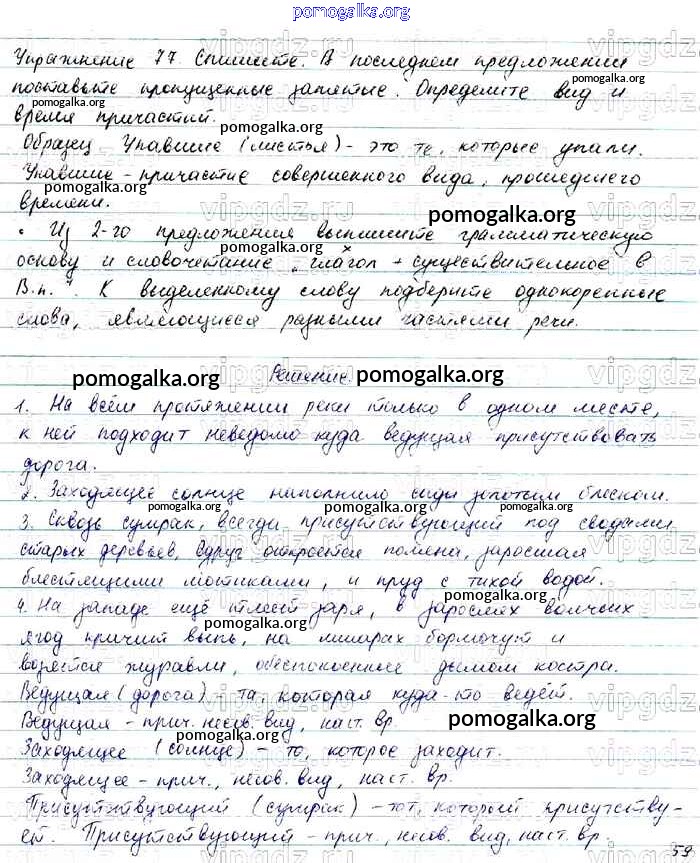 pomogalka.org
Упражнение 77. Спишите. В последнем предложении
поставьте пропущенные запятые. Определите вид и
pomogalka.org
время причастий.
pomogalka.org
Образец Упавшие (листья) - это те, которые упали.
Упавшие - причастие совершенного вида, прошедшего
pomogalka.org
времени.
pomogalka.org
• Из 2-го предложения выпишите грамматическую
основу и словочетание "глагол + существительное в
В.п.". К выделенному слову подберите однокоренные
слова, являющиеся разными частями речи.
Решение.
pomogalka.org pomogalka.org
1. На всём протяжении реки только в одном месте,
к ней подходит неведомо куда ведущая присутствовать
дорога.
pomogalka.org
2. Заходящее солнце наполнило сады золотым блеском.
pomogalka.org pomogalka.org
3. Сквозь сумрак, всегда присутствующий под сводами
старых деревьев, вдруг откроется поляна, заросшая
блестящими мотиками, и пруд с тихой водой.
pomogalka.org
4. На западе ещё тлеет заря, в зарослях волчьих
pomogalka.org
ягод кричит выпь, на мшарах бормочут и
возятся журавли, обеспокоенные дымом костра.
Ведущая (дорога) - та, которая куда-то ведёт.
Ведущая - прич. несов. вид, наст. вр.
pomogalka.org
Заходящее (солнце) - то, которое заходит.
Заходящее - прич., несов. вид, наст. вр.
Присутствующий (сумрак) - тот, который присутству-
ет. Присутствующий - прич., несов. вид, наст. вр.
59
vipgdz.ru